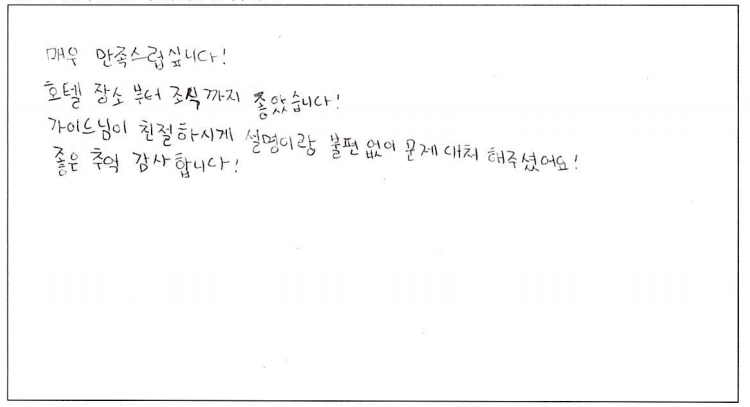 매우 만족스럽싶니다!
호텔 장소 부터 조식 까지 좋았습니다!
가이드님이 친절하시게 설명이랑 불편 없이 문제 대처 해주셨어요!
좋은 추억 감사합니다!